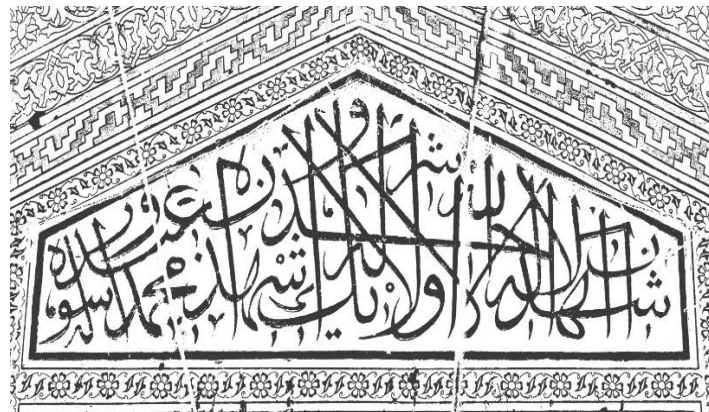 اشهد ان لا اله الا الله وحده لا شريك له و اشهد ان محمدا عبده و رسوله